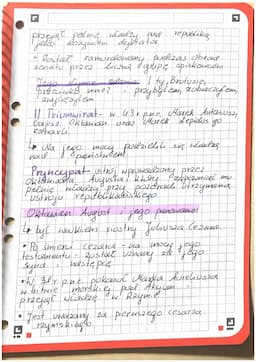 przejął pełnię władzy nad republiką
jako dożywotni dyktator
• Został zamordowany podczas obrad
senatu przez liczną grupę spiskowców
I ty, Brutusie,
przeciwko mnie? przybyłem, zobaczyłem,
zwyciężyłem
II Triumwirat - w 43 r. p.n.e. Marek Antoniusz,
Gajusz Oktawian oraz Marek Lepidus go
zawarli.
↳ Na jego mocy podzielili się władzą
nad państwem
Pryncypat - ustrój wprowadzony przez
Oktawiana Augusta, który zapewniał mu
pełnię władzy przy pozorach utrzymania
ustroju republikańskiego.
Oktawian August i jego panowanie
↳ był wnukiem siostry Juliusza Cezara
• Po śmierci Cezara - na mocy jego
testamentu - został uznany za jego
syna i następcę
• W 31 r. p.n.e. pokonał Marka Aureliusza
w bitwie morskiej pod Akcjum i
przejął władzę w Rzymie
• Jest uważany za pierwszego cesarza
rzymskiego.